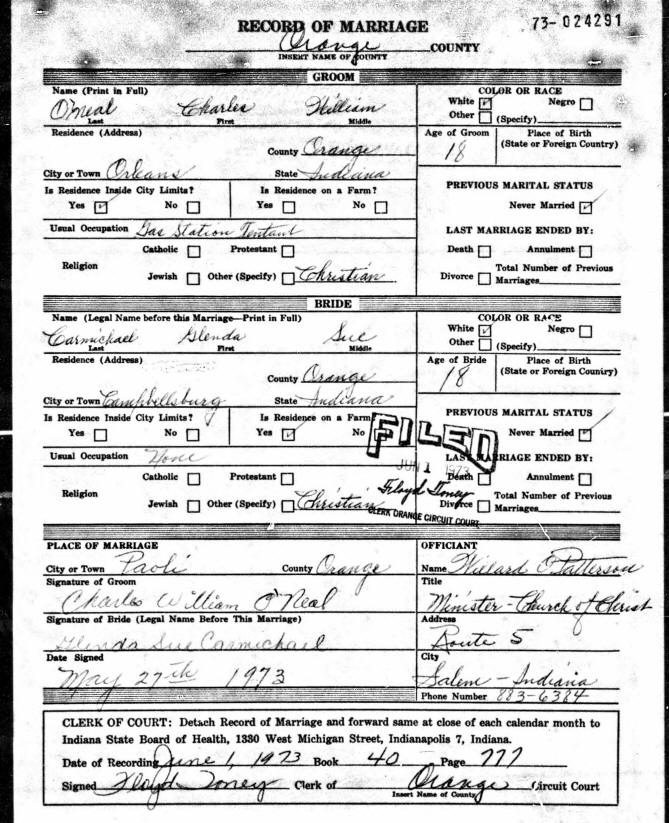 RECORD OF MARRIAGE
73-024291
Orange COUNTY
INSERT NAME OF COUNTY
GROOM
Name (Print in Full)
O'Neal Charles William
Last First Middle
COLOR OR RACE
White ☑ Negro ☐
Other ☐ (Specify)
Residence (Address)
County Orange
City or Town Orleans State Indiana
Age of Groom
18
Place of Birth
(State or Foreign Country)
Is Residence Inside City Limits?
Yes ☑ No ☐
Is Residence on a Farm?
Yes ☐ No ☐
PREVIOUS MARITAL STATUS
Never Married ☑
Usual Occupation Gas Station Tentant
LAST MARRIAGE ENDED BY:
Religion
Catholic ☐ Protestant ☐
Jewish ☐ Other (Specify) ☐ Christian
Death ☐ Annulment ☐
Divorce ☐ Total Number of Previous
Marriages
BRIDE
Name (Legal Name before this Marriage—Print in Full)
Carmichael Glenda Sue
Last First Middle
COLOR OR RACE
White ☑ Negro ☐
Other ☐ (Specify)
Residence (Address)
County Orange
City or Town Campbellsburg State Indiana
Age of Bride
18
Place of Birth
(State or Foreign Country)
Is Residence Inside City Limits?
Yes ☐ No ☐
Is Residence on a Farm
Yes ☑ No
PREVIOUS MARITAL STATUS
Never Married ☑
FILED
JUN 1 1973
Floyd Toney
CLERK ORANGE CIRCUIT COURT
Usual Occupation None
LAST MARRIAGE ENDED BY:
Religion
Catholic ☐ Protestant ☐
Jewish ☐ Other (Specify) ☐ Christian
Death ☐ Annulment ☐
Divorce ☐ Total Number of Previous
Marriages
PLACE OF MARRIAGE
City or Town Paoli County Orange
Signature of Groom
Charles William O'Neal
Signature of Bride (Legal Name Before This Marriage)
Glenda Sue Carmichael
Date Signed
May 27th 1973
OFFICIANT
Name Willard O Patterson
Title
Minister - Church of Christ
Address
Route 5
City
Salem - Indiana
Phone Number 883-6384
CLERK OF COURT: Detach Record of Marriage and forward same at close of each calendar month to
Indiana State Board of Health, 1330 West Michigan Street, Indianapolis 7, Indiana.
Date of Recording June 1, 1973 Book 40 Page 777
Signed Floyd Toney Clerk of Orange Circuit Court
Insert Name of County